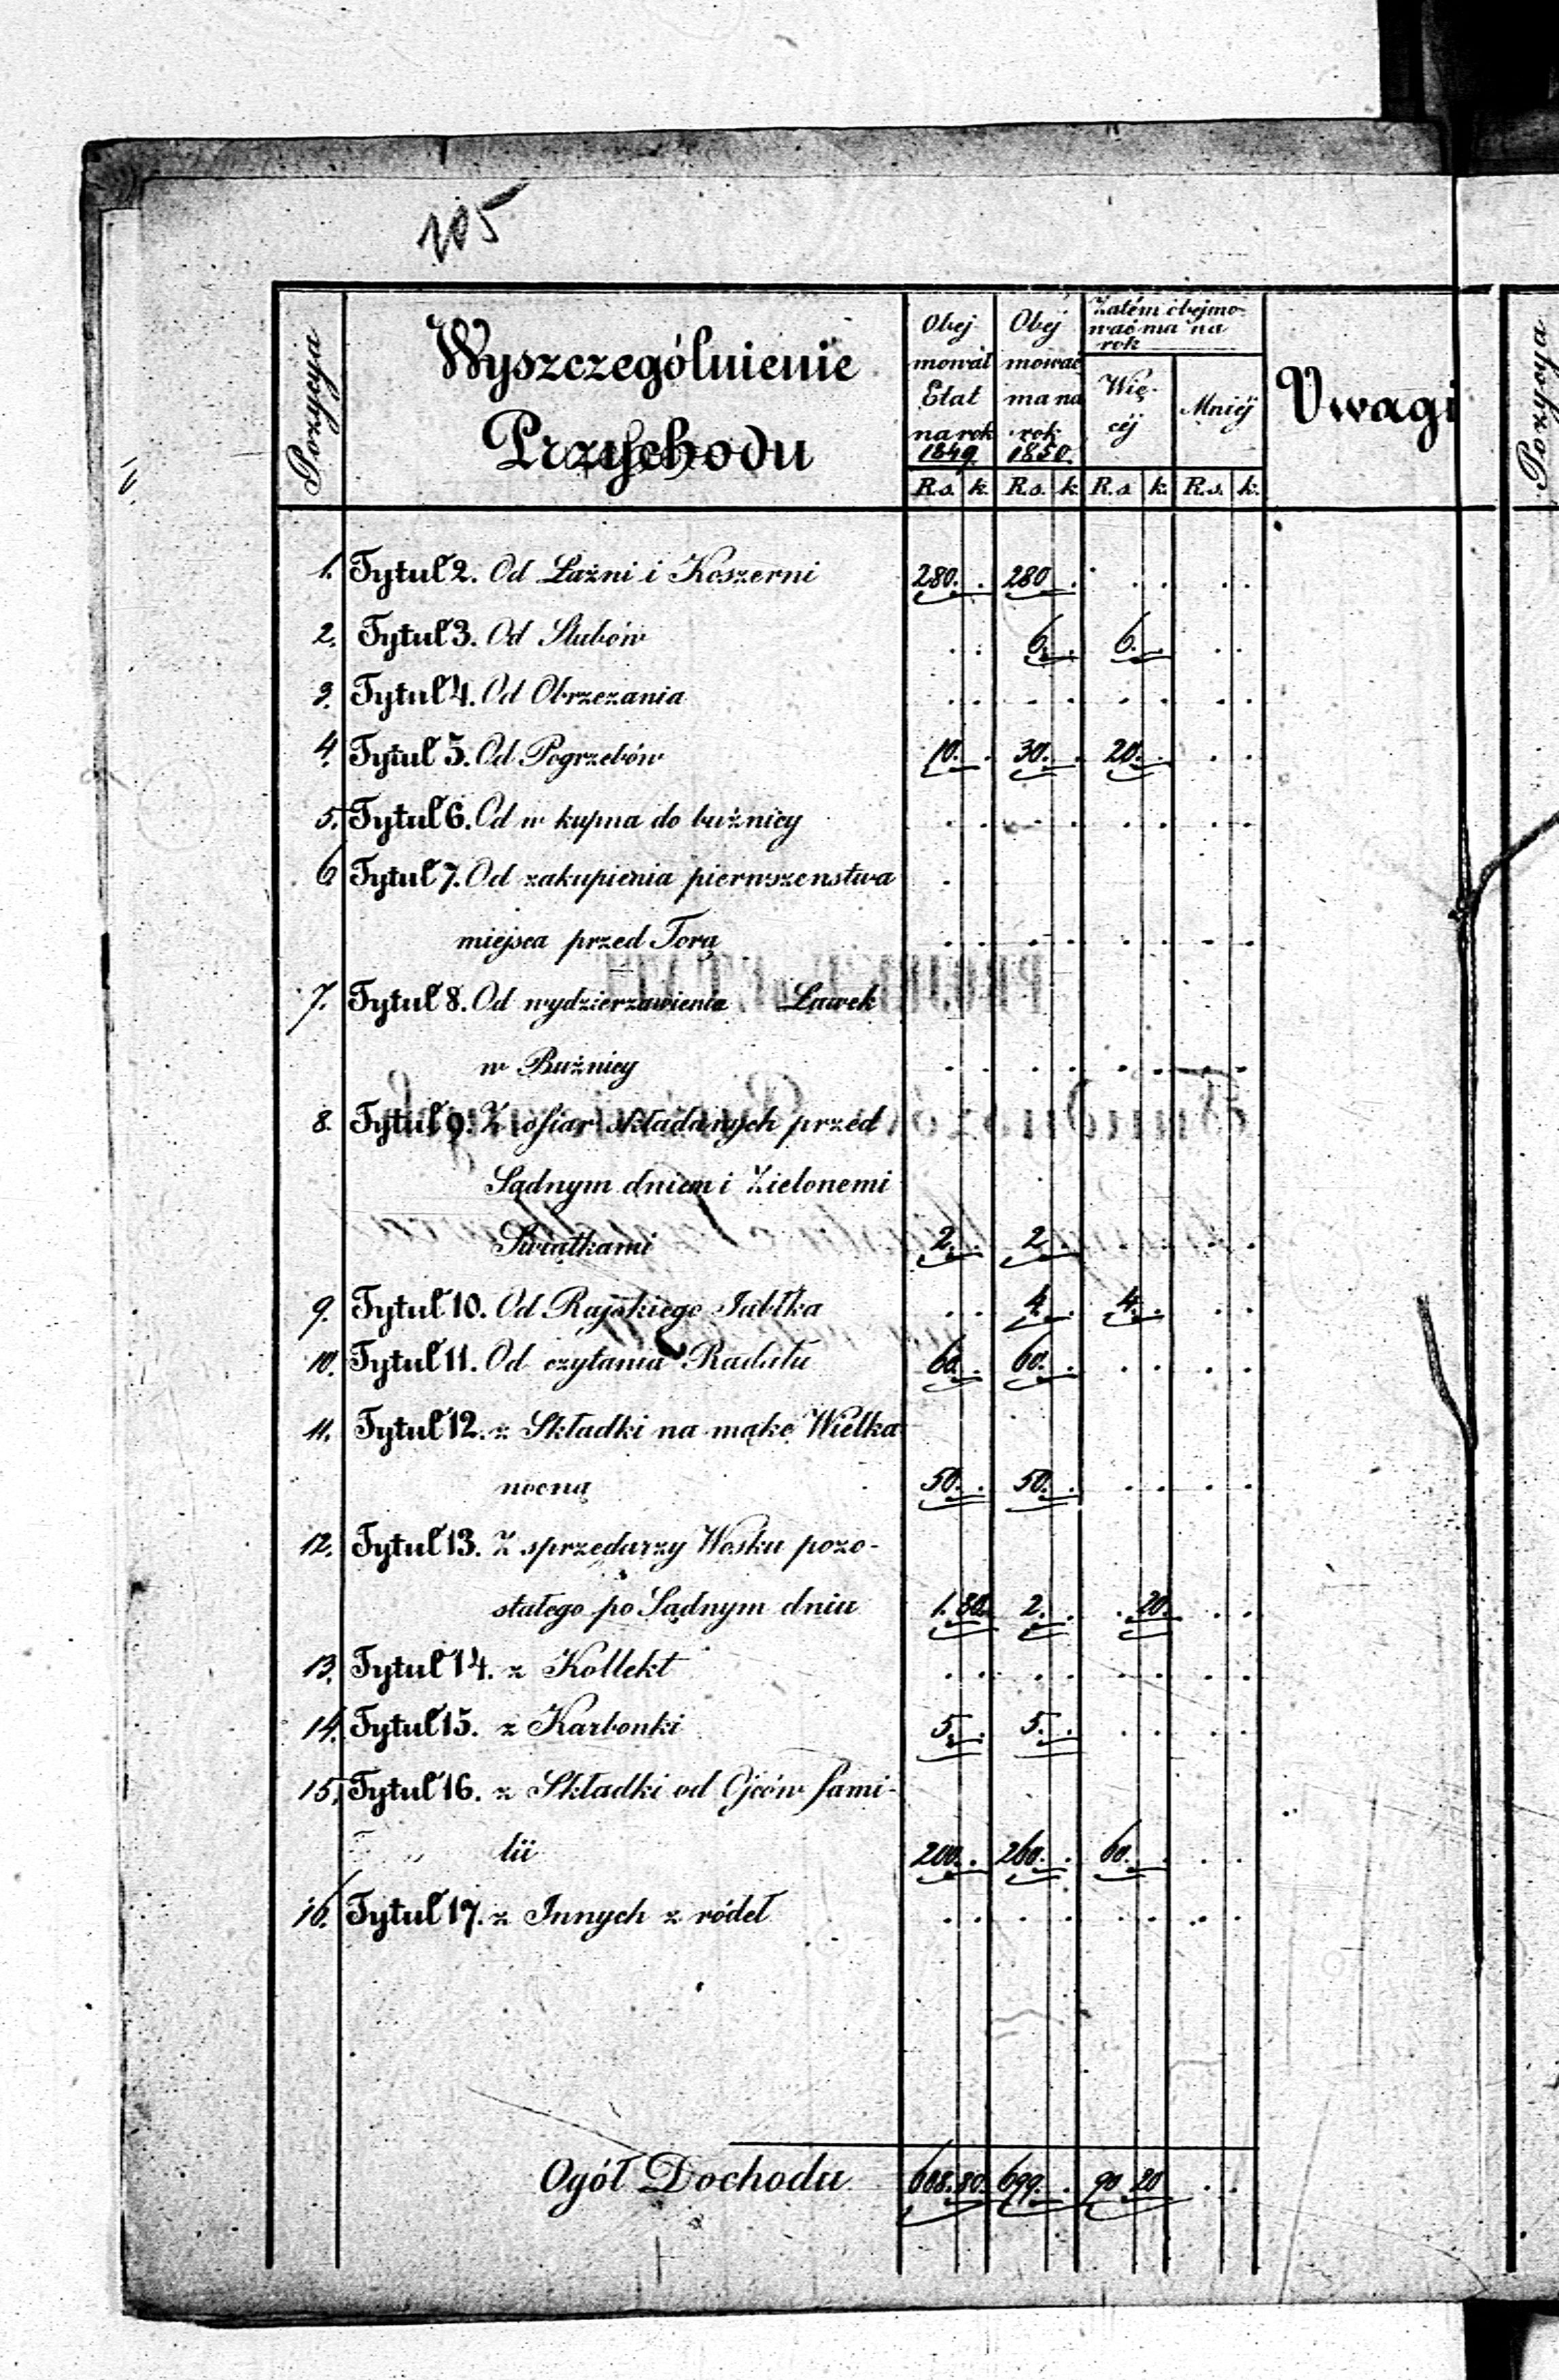 205
Pozycyia
Wyszczególnienie
Przychodu
Obej
mował
Etat
na rok
1849.
Obej
mować
ma na
rok
1850.
Zatém obejmo-
wać ma na
rok
Wię-
céj
Mniéj
Uwagi
Pozycyia
R.s. k. R.s. k. R.s. k. R.s. k.
1. Tytuł 2. Od Łaźni i Koszerni 280. . 280 . . . . .
2. Tytuł 3. Od Slubów . . 6. . 6. . . .
3. Tytuł 4. Od Obrzezania . . . . . . . .
4. Tytuł 5. Od Pogrzebów 10. . 30. . 20. . . .
5. Tytuł 6. Od w kupna do bużnicy . . . . . . . .
6. Tytuł 7. Od zakupienia pierwszenstwa
miejsca przed Torą . . . . . . . .
7. Tytuł 8. Od wydzierzawienia Ławek
w Bużnicy . . . . . . . .
8. Tytuł 9. Z ofiar składanych przéd
Sądnym dniem i Zielonemi
Swiątkami 2. . 2 . . . . .
9. Tytuł 10. Od Rajskiego Jabłka . . 4. . 4. . . .
10. Tytuł 11. Od czytania Radału 60. . 60. . . . . .
11. Tytuł 12. z Składki na mąkę Wielka
nocną 50. . 50. . . . . .
12. Tytuł 13. Z sprzedarzy Wosku pozo-
stałego po Sądnym dniu 1. 80. 2. . . 20. . .
13. Tytuł 14. z Kollekt . . . . . . . .
14. Tytuł 15. z Karbonki 5. . 5. . . . . .
15. Tytuł 16. z Składki od Ojców fami-
lii 200. . 260. . 60. . . .
16. Tytuł 17. z Innych z ródeł . . . . . . . .
Ogół Dochodu 608. 80. 699. . 90 20 . .